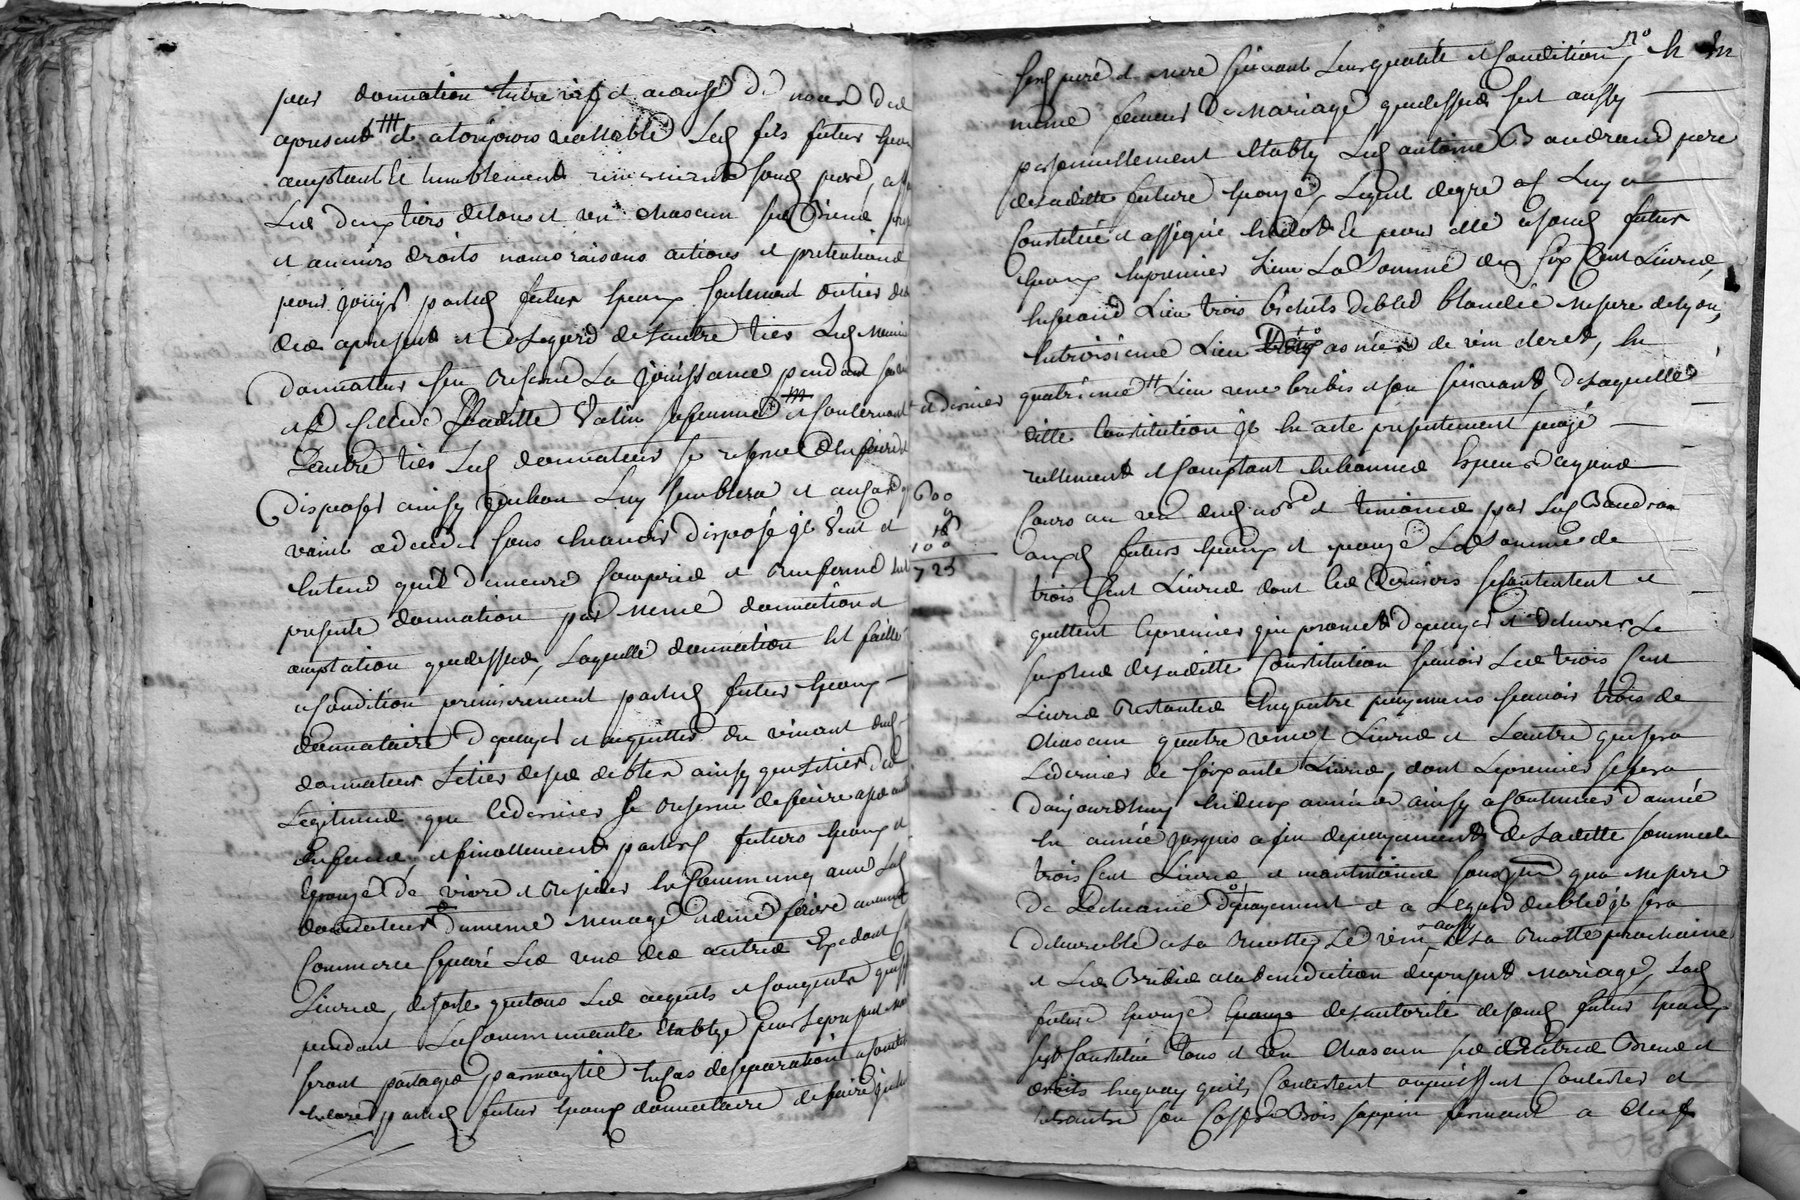 pour donnation entre vifs et a cause de noces des
apresent et a toujours vallable led fils futur epoux
acceptant et humblement remerciant soud pere,
Les deux tiers de tous et un chascun ses Biens
et autres droits noms raisons actions et pretentions
pour jouir par led futur epoux seulement du tier des
des apresent et a legard de lautre tier led
donnateur sen reserve La jouissance pendant sa vie
et celle de Laditte Vatin sa femme et concernant et dernier
Lautre tier led donnateur se reserve den faire et
disposer ainsy que bon Luy semblera et au cas quil
vaint a deceder sans en avoir disposé il veut et
entend quil demeure compris et renfermé en la
presente donnation par meme donnation et
acceptation que dessus, Laquelle donnation est faitte
a condition premierement par led futur epoux
donnataire de payer et acquitter du vivant dud
donnateur Le tier de ses debtes ainsy que Le tier des
Legitimes que ce dernier se reserve de faire a ses autres
enfants, et finallement par les futurs epoux et
epouze de vivre et resider en Communion avec led
donnateur dun meme menage sans faire aucun
Commerce separé Les uns des autres Excedant
Livres, de sorte que tous Les acquets et conquets
pendant La Communauté Etablye
seront partagés par moytié en cas de separation
encore par led futur epoux donnataire de faire
600
9
16
100
725
sesd pere et mere suivant Leur qualité et Condition,
meme faveur de Mariage que dessus sest aussy
personnellement etably led antoine Baudrand pere
de laditte future epouze, Lequel de gré a
Constitué et assigné en dot et pour elle a soud futur
Epoux en premier Lieu La Somme de six Cent Livres,
en second Lieu trois bichets de bled blondée mesure de Lyon,
en troisieme Lieu asnées de vin cleret, en
quatrieme Lieu une brebis et son suivant, de Laquelle
ditte Constitution il en a été presentement payé
reellement et comptant en bonnes especes ayant
Cours au vu dud nore et temoins par led Baudrand
auxd futurs epoux et epouze La Somme de
trois Cent Livres dont Les derniers se contentent et
quittent Le premier qui promet de payer et delivrer Le
surplus de laditte Constitution scavoir Les trois Cent
Livres Restantes en quatre payemens scavoir trois de
chascun quatre vingt Livres et Lautre qui sera
Le dernier de soixante Livres, dont Le premier se fera
daujourdhuy en deux années ainsy a continuer dannée
en année jusques a fin de payement de Laditte somme de
trois Cent Livres et neantmoins sans qua mesure
de Lecheance de payement et a Legard du bled il sera
delivrable a la recolte, Le vin aussy a la recolte prochaine
et Les Brebis a la benediction du present mariage, Lad
future epouze de lautorité de soud futur epoux
sest constitué tous et un chascun ses autres Biens et
droits en quoy quils Consistent ou puissent Consister et
entrautre son Coffre Bois sappin fermant a clef